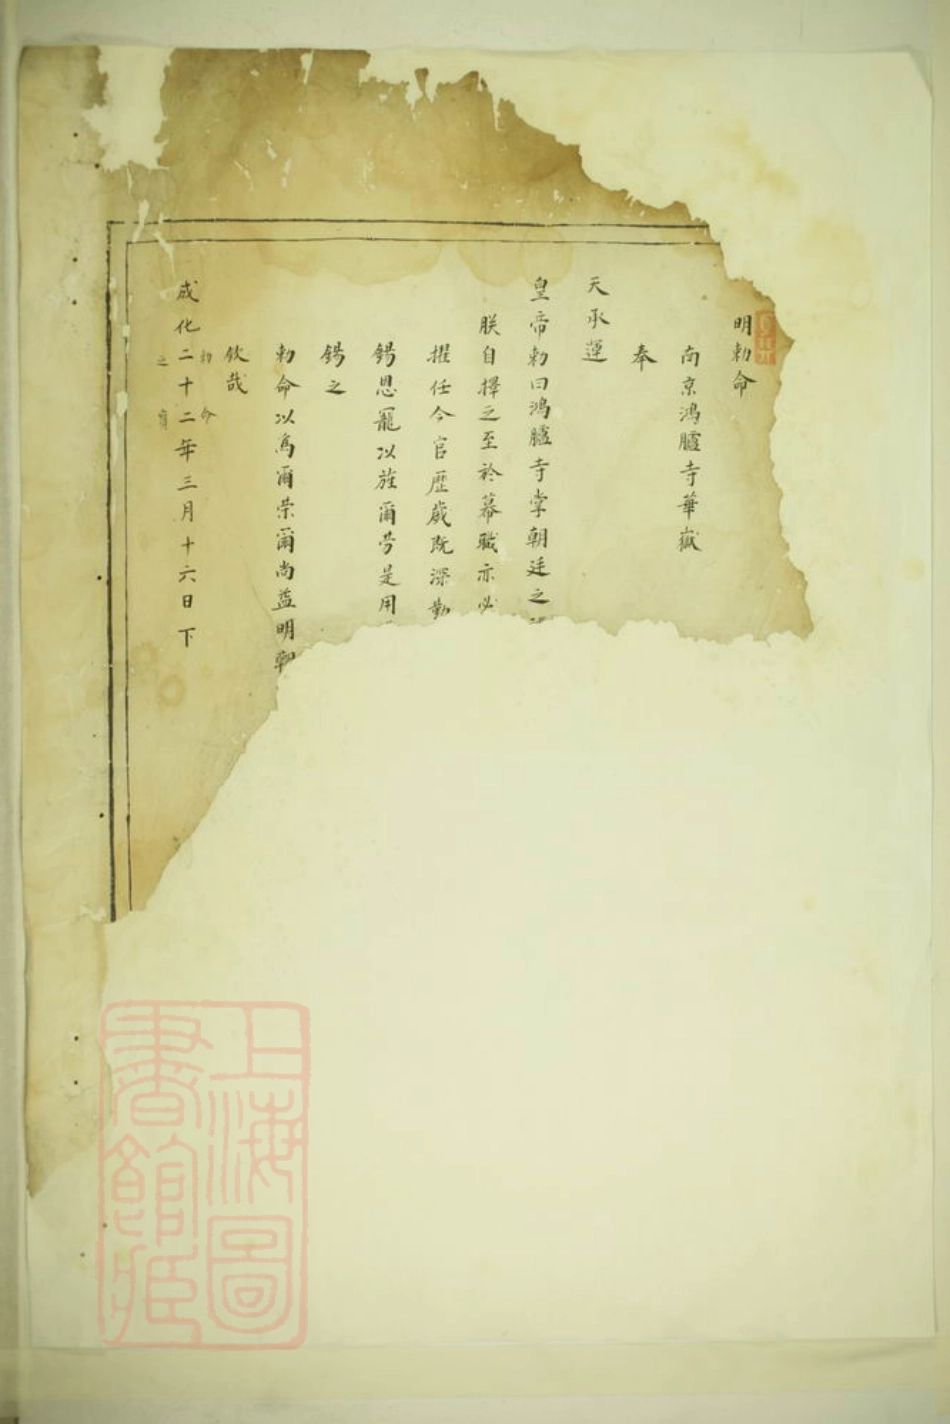 明勅命
南京鴻臚寺華嶽
奉
天承運
皇帝勅曰鴻臚寺掌朝廷之
朕自擇之至於幕職亦必
擢任今官歷歲既深勤
錫恩寵以旌爾勞是用
錫之
勅命以為爾榮爾尚益明
欽哉
勅命
成化二十二年三月十六日下
之寶
上海圖
書館藏